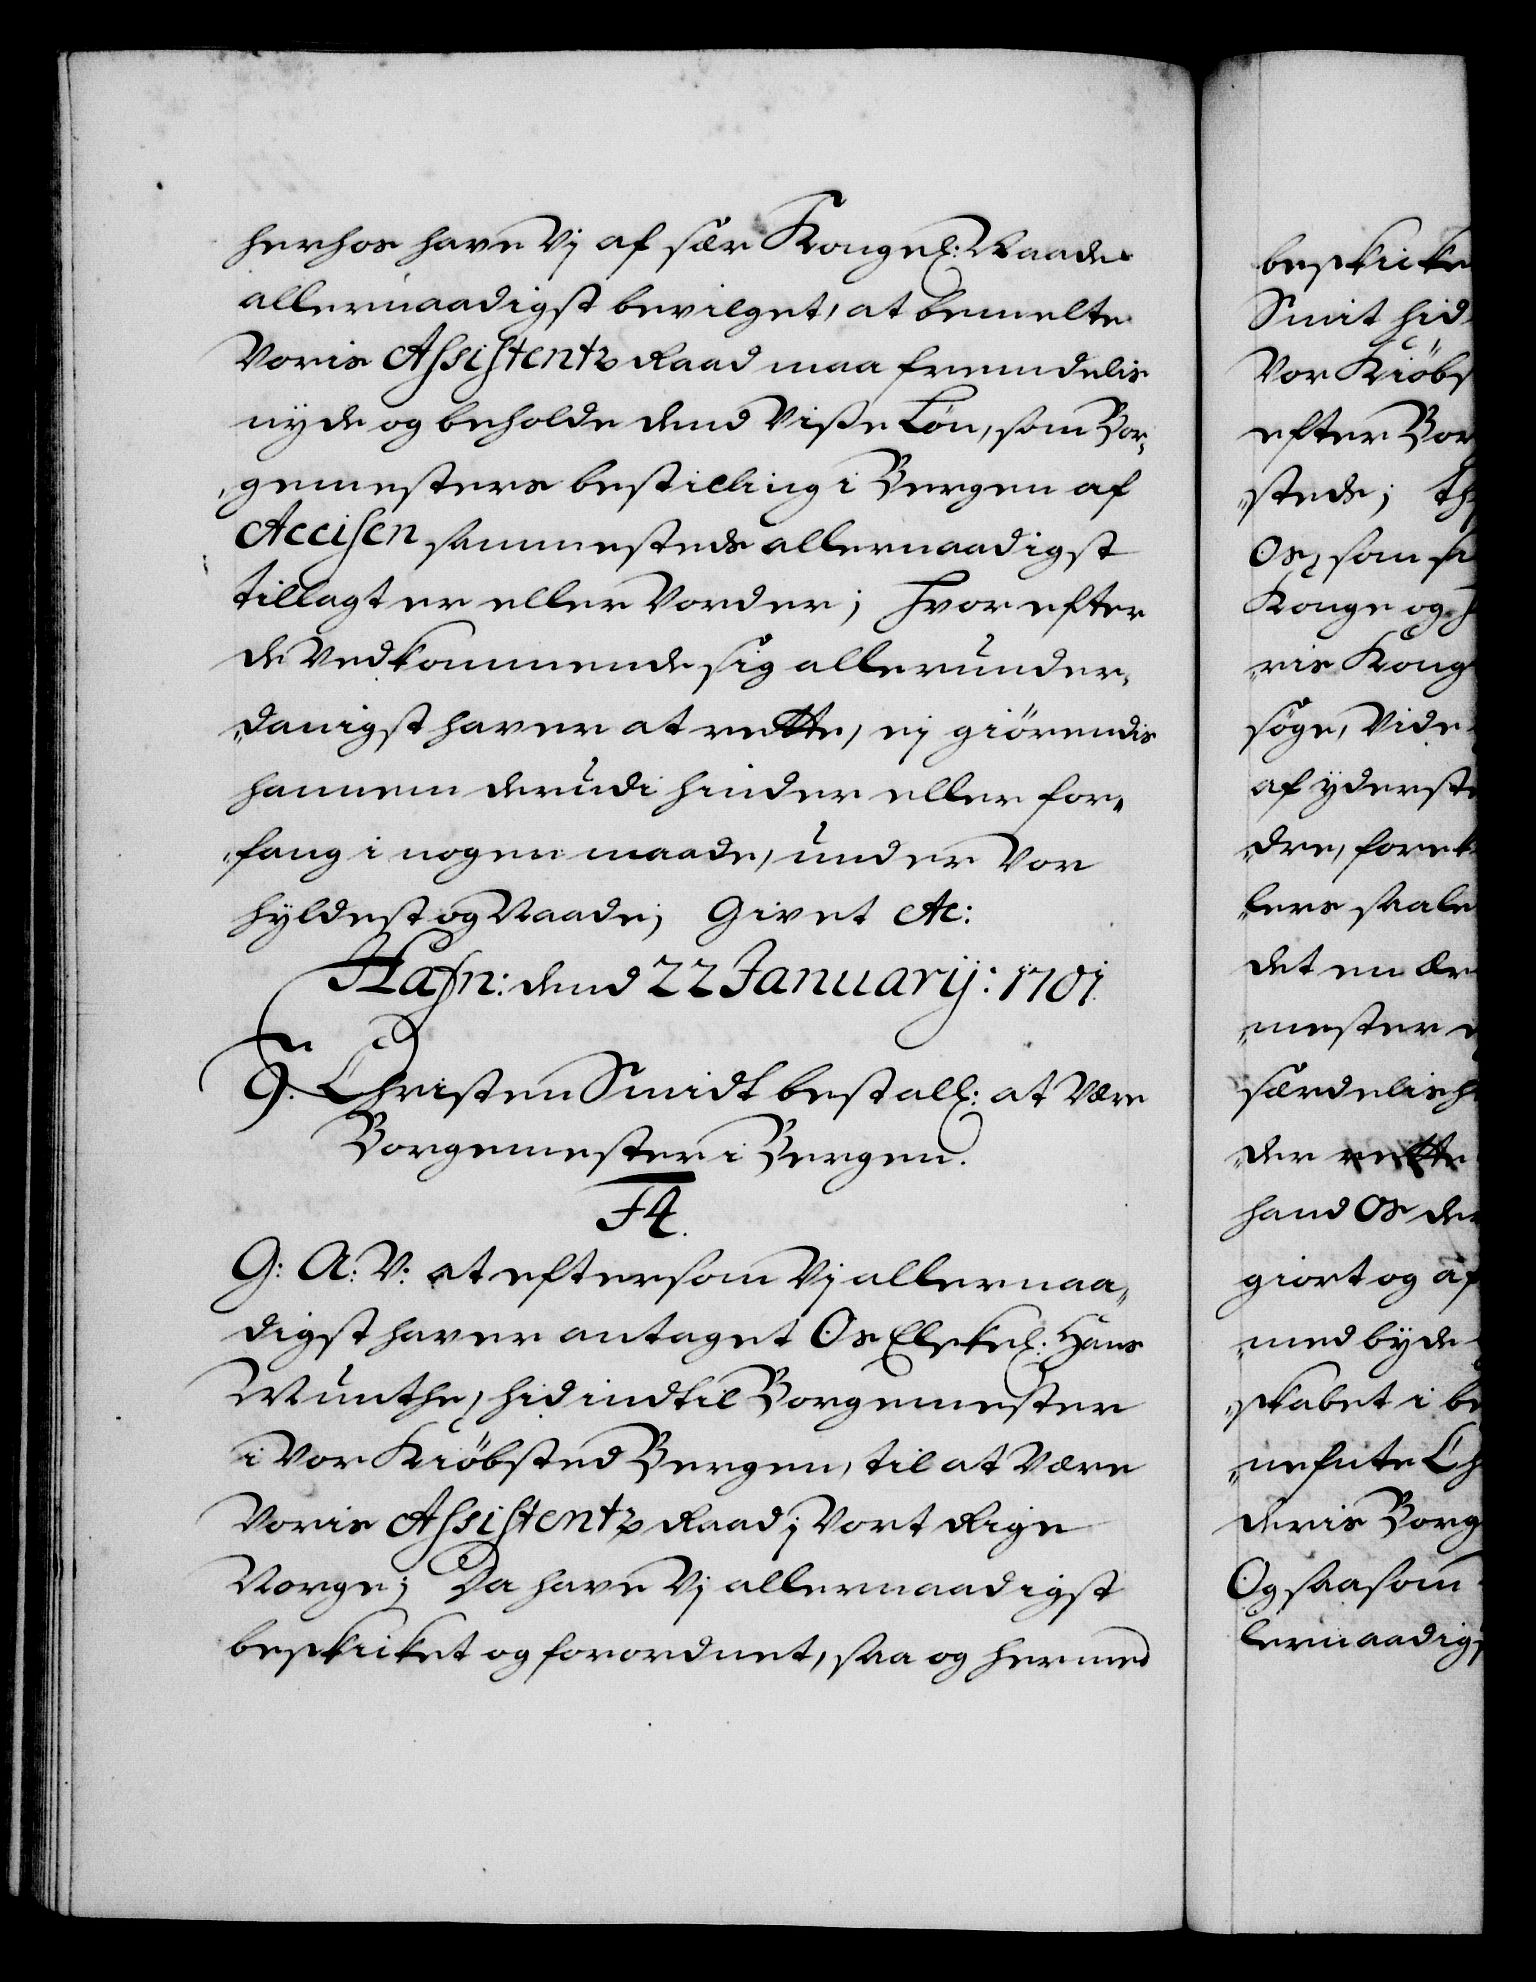 herhos have Vj af sær Kongel: Naade
allernaadigst bevilget, at bemelte
Voris Assistentz Raad maa fremdelis
nyde og beholde dend Visse Løn, som Bor„
„gemesters bestilling i Bergen af
Accisen sammesteds allernaadigst
tillagt er eller Vorder; hvor efter
de Vedkommende sig allerunder„
„danigst haver at rette, ej giörendis
hannem derudi hinder eller for„
„fang i nogen maade, under Vor
hyldest og Naade; Givet &c:
Hafn: dend 22 Januarij: 1701.
Christen Smidt bestall: at Være
Borgemester i Bergen.
F4.
G: A: V: at eftersom Vj allernaa„
digst haver antaget Os Elskel: Hans
Munthe, hid indtil Borgemester
i Vor Kiöbsted Bergen, til at Være
Voris Assistentz Raad j Vort Rige
Norge; Da have Vj allernaadigst
beskicket og forordnet, saa og hermed
beskicke
Smit hid
Vor Kiöbs
efter Bor
„steds; th
Os, som sin
Konge og
„ris Kong
söge, Vide
af yderste
„dre, forek
„lers saale
det en ær
„mester
særdelish
„der rette
hand Os der
giort og af
„med byde
„skabet i be
„nefnte Ch
deris Borg
Og saasom
lernaadigs